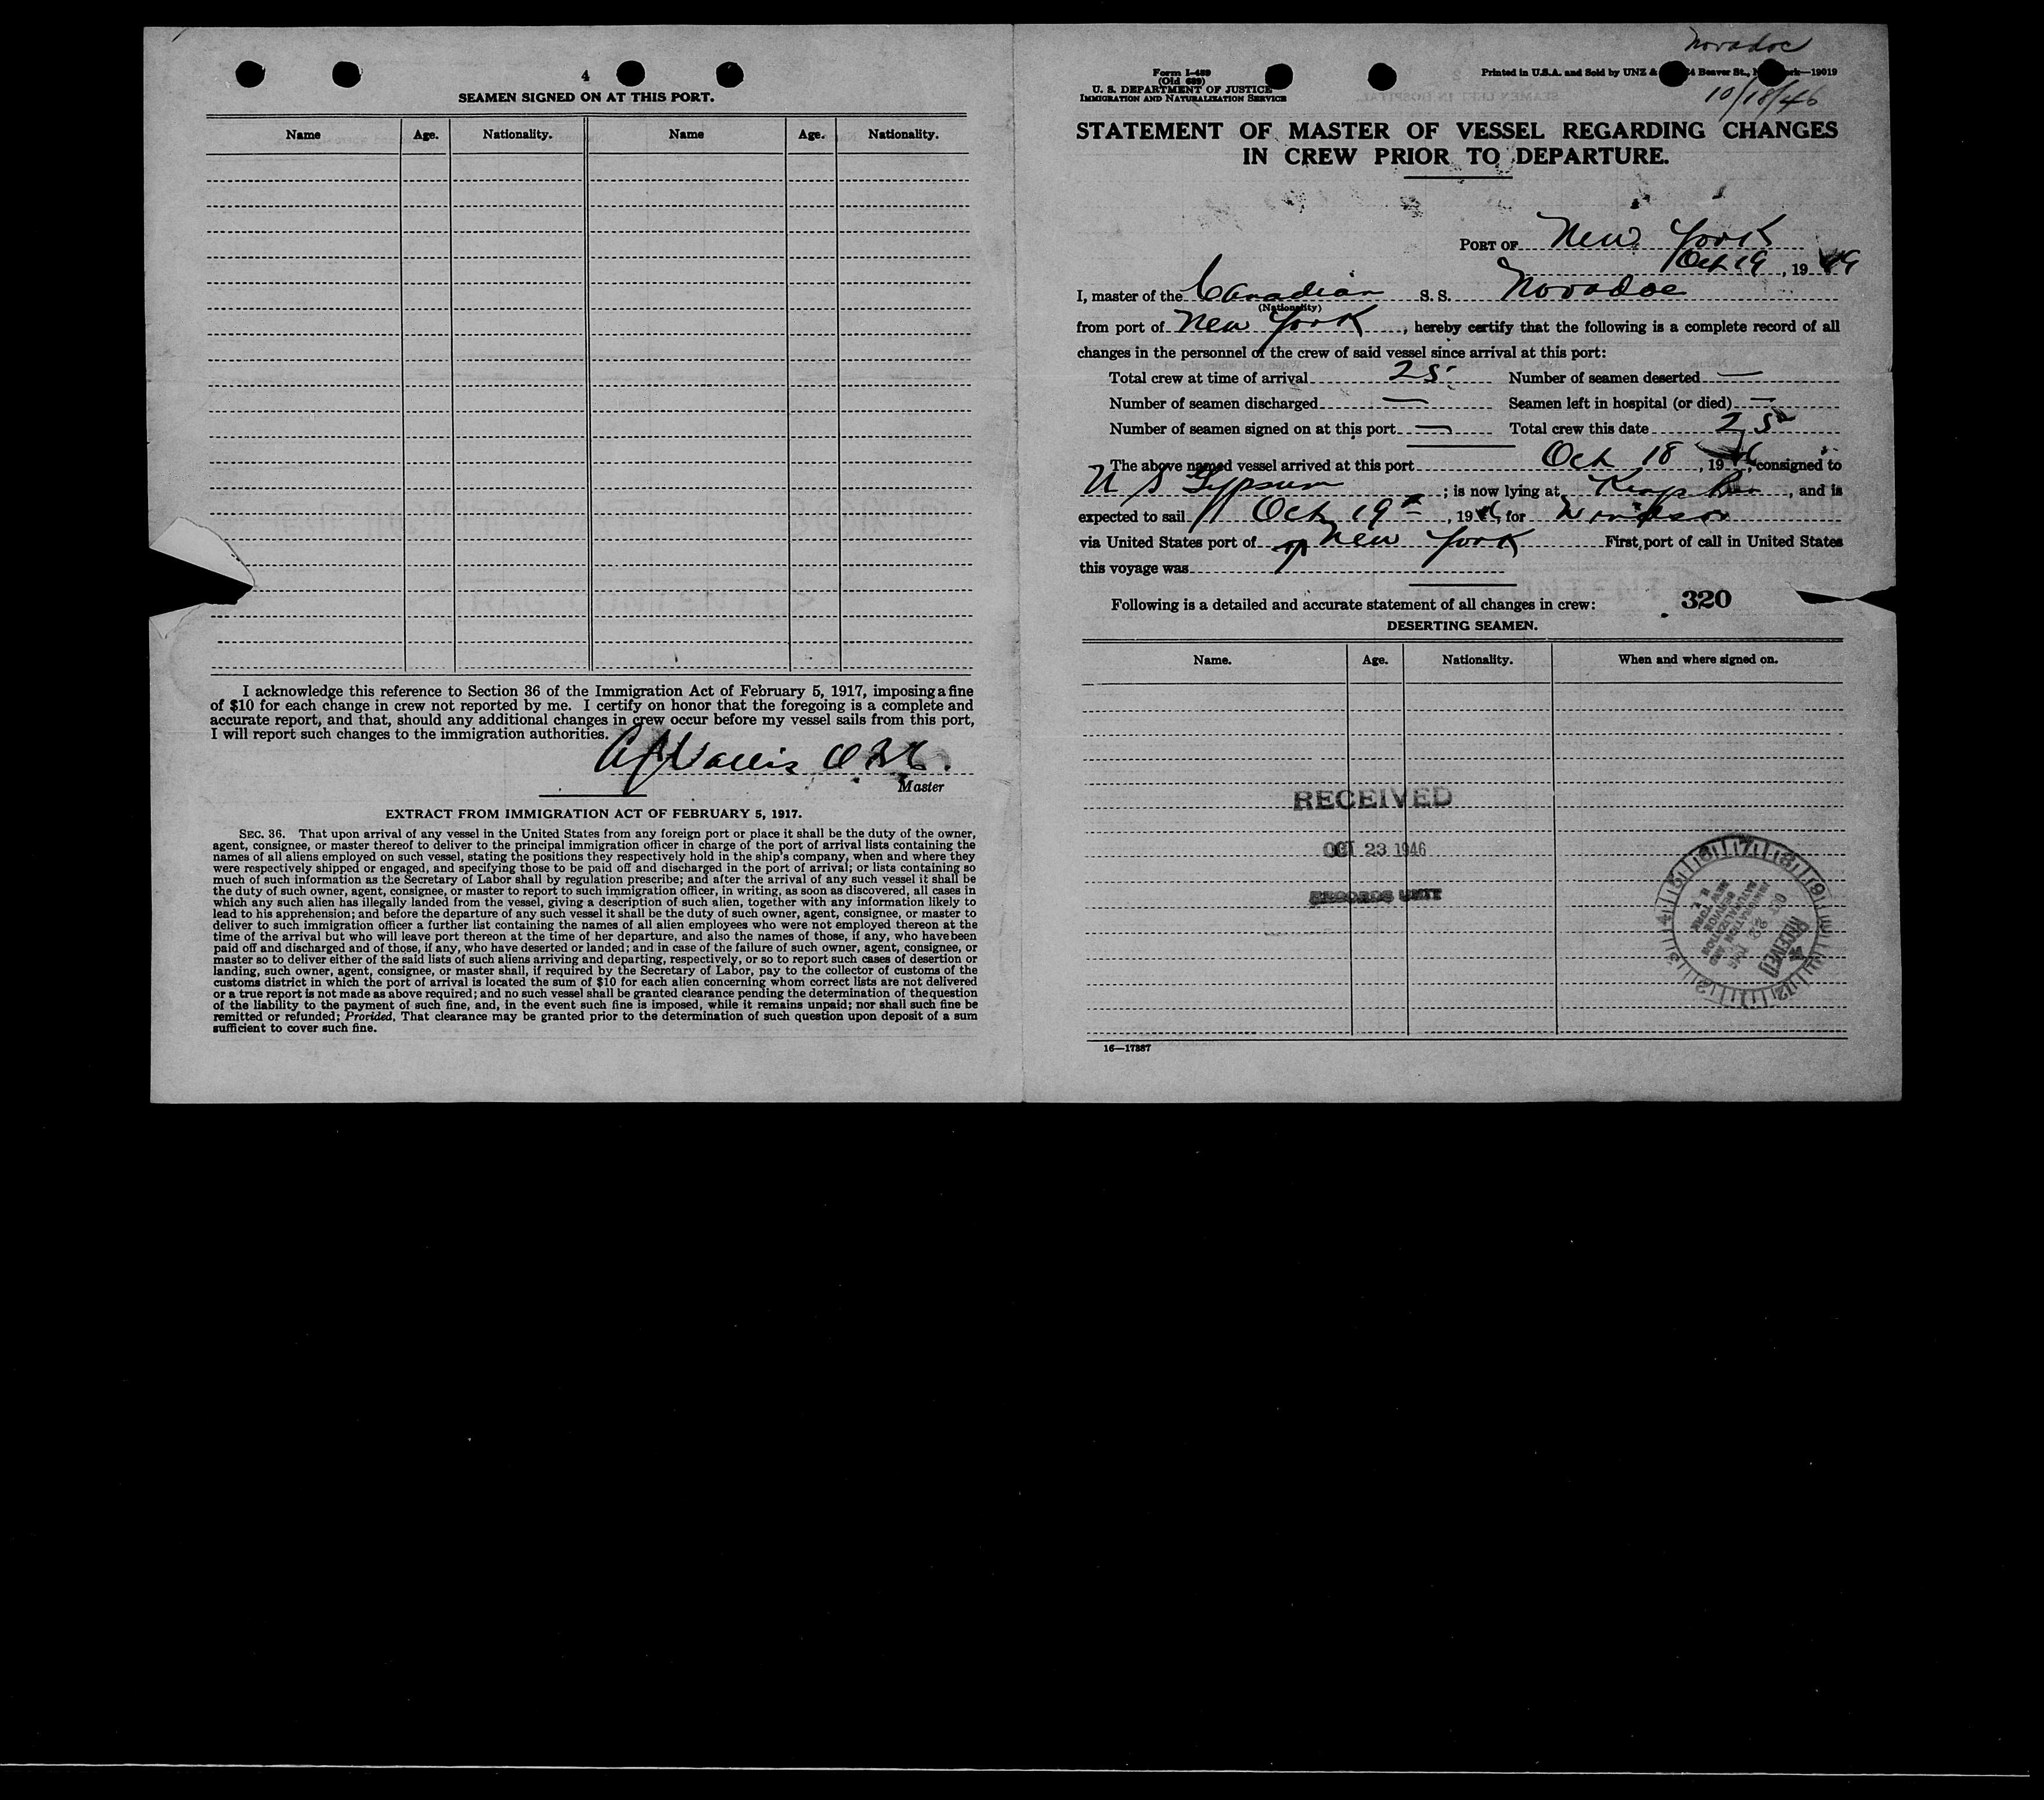 4
SEAMEN SIGNED ON AT THIS PORT.
Name Age. Nationality. Name Age. Nationality.
I acknowledge this reference to Section 36 of the Immigration Act of February 5, 1917, imposing a fine
of $10 for each change in crew not reported by me. I certify on honor that the foregoing is a complete and
accurate report, and that, should any additional changes in crew occur before my vessel sails from this port,
I will report such changes to the immigration authorities.
Wallis
Master
EXTRACT FROM IMMIGRATION ACT OF FEBRUARY 5, 1917.
SEC. 36. That upon arrival of any vessel in the United States from any foreign port or place it shall be the duty of the owner,
agent, consignee, or master thereof to deliver to the principal immigration officer in charge of the port of arrival lists containing the
names of all aliens employed on such vessel, stating the positions they respectively hold in the ship's company, when and where they
were respectively shipped or engaged, and specifying those to be paid off and discharged in the port of arrival; or lists containing so
much of such information as the Secretary of Labor shall by regulation prescribe; and after the arrival of any such vessel it shall be
the duty of such owner, agent, consignee, or master to report to such immigration officer, in writing, as soon as discovered, all cases in
which any such alien has illegally landed from the vessel, giving a description of such alien, together with any information likely to
lead to his apprehension; and before the departure of any such vessel it shall be the duty of such owner, agent, consignee, or master to
deliver to such immigration officer a further list containing the names of all alien employees who were not employed thereon at the
time of the arrival but who will leave port thereon at the time of her departure, and also the names of those, if any, who have been
paid off and discharged and of those, if any, who have deserted or landed; and in case of the failure of such owner, agent, consignee, or
master so to deliver either of the said lists of such aliens arriving and departing, respectively, or so to report such cases of desertion or
landing, such owner, agent, consignee, or master shall, if required by the Secretary of Labor, pay to the collector of customs of the
customs district in which the port of arrival is located the sum of $10 for each alien concerning whom correct lists are not delivered
or a true report is not made as above required; and no such vessel shall be granted clearance pending the determination of the question
of the liability to the payment of such fine, and, in the event such fine is imposed, while it remains unpaid; nor shall such fine be
remitted or refunded; Provided, That clearance may be granted prior to the determination of such question upon deposit of a sum
sufficient to cover such fine.
Novadoc
Form I-489
(Old 689)
U. S. DEPARTMENT OF JUSTICE
IMMIGRATION AND NATURALIZATION SERVICE
Printed in U.S.A. and Sold by UNZ & Beaver St., 19019
10/18/46
STATEMENT OF MASTER OF VESSEL REGARDING CHANGES
IN CREW PRIOR TO DEPARTURE.
PORT OF New York
Oct 19, 19
I, master of the Canadian S. S. Novadoc
(Nationality)
from port of New York, hereby certify that the following is a complete record of all
changes in the personnel of the crew of said vessel since arrival at this port:
Total crew at time of arrival 25 Number of seamen deserted —
Number of seamen discharged — Seamen left in hospital (or died) —
Number of seamen signed on at this port — Total crew this date 25
The above named vessel arrived at this port Oct 18, 19, consigned to
U S Gypsum; is now lying at, and is
expected to sail Oct 19th, 19, for Windsor
via United States port of New York First port of call in United States
this voyage was
Following is a detailed and accurate statement of all changes in crew: 320
DESERTING SEAMEN.
Name. Age. Nationality. When and where signed on.
RECEIVED
OCT 23 1946
RECORDS UNIT
RECEIVED
16—17887